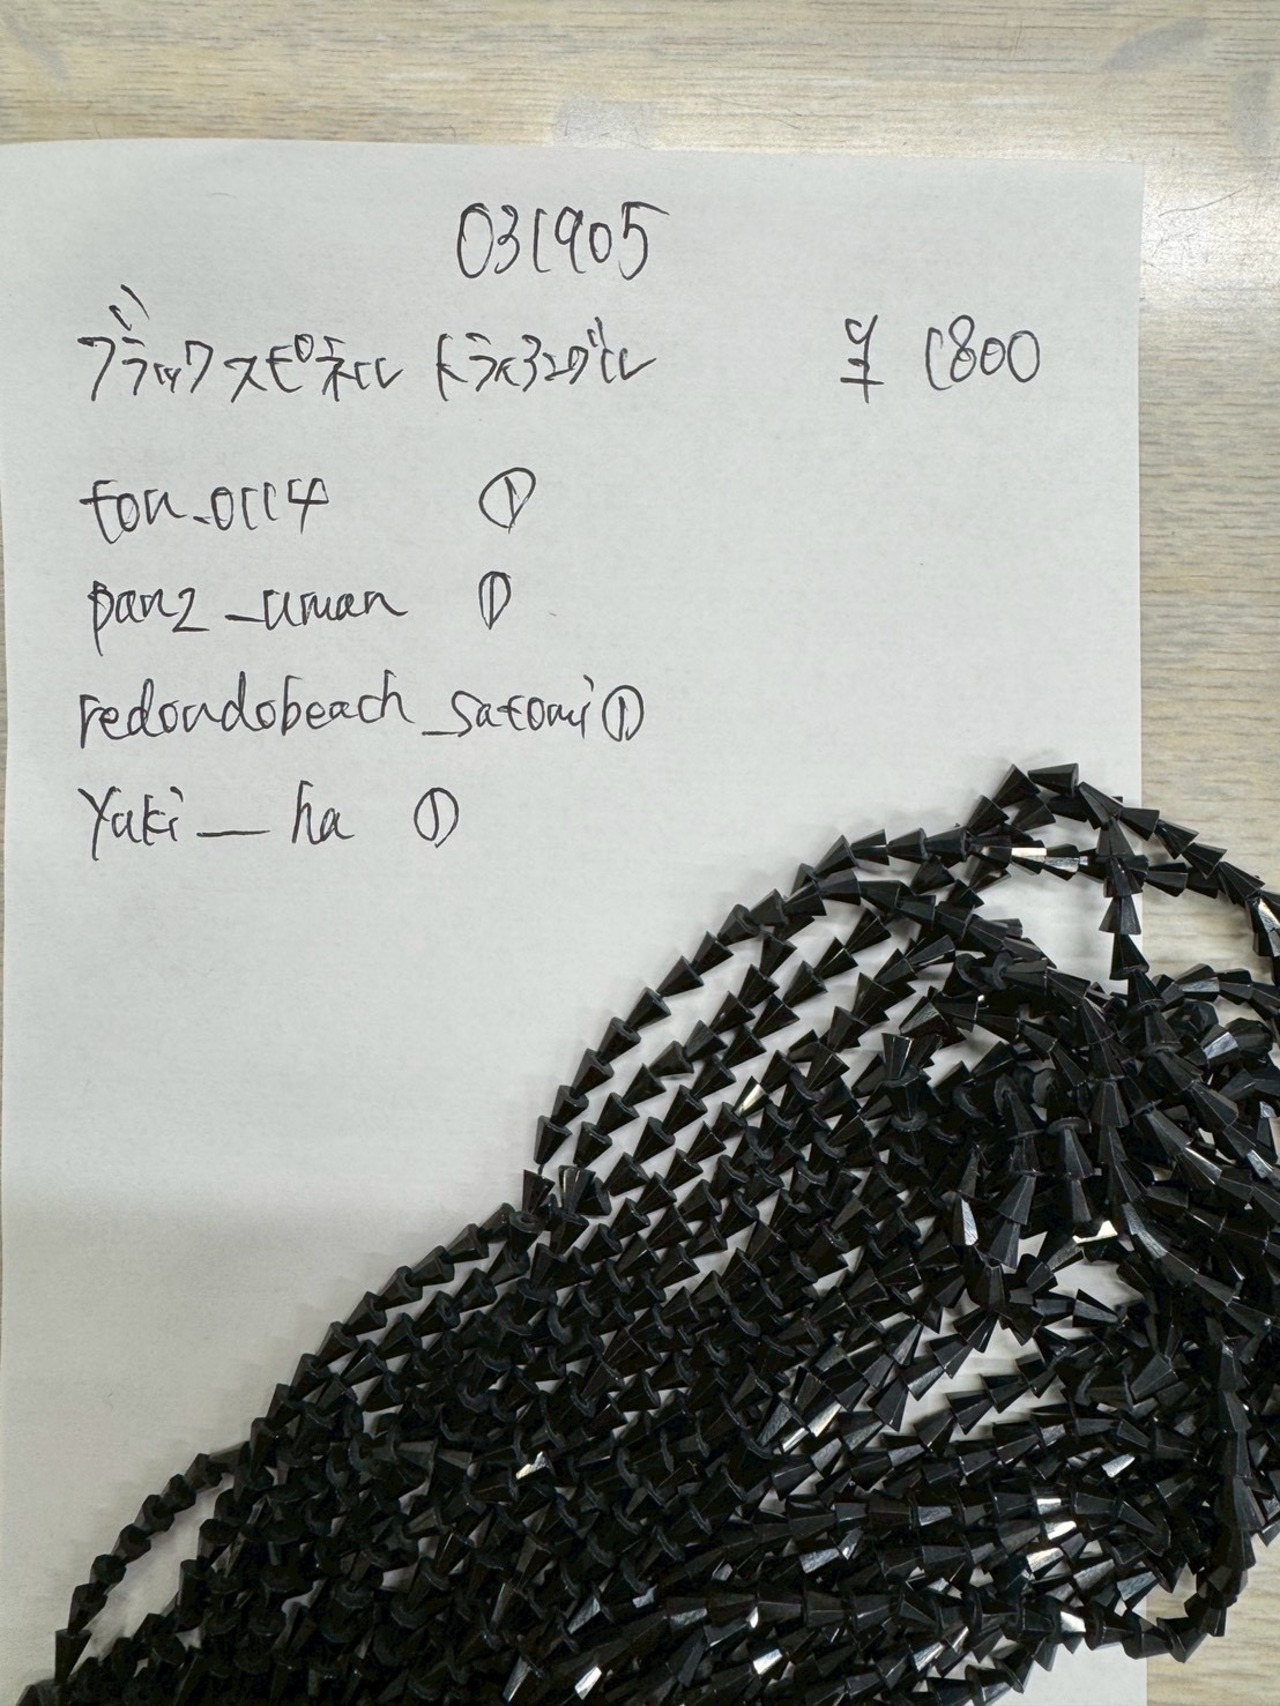 031905
ブラックスピネル トライアングル ¥ 1800
ton_0114 ①
panz_uman ①
redondobeach_satomi ①
Yuki__ha ①